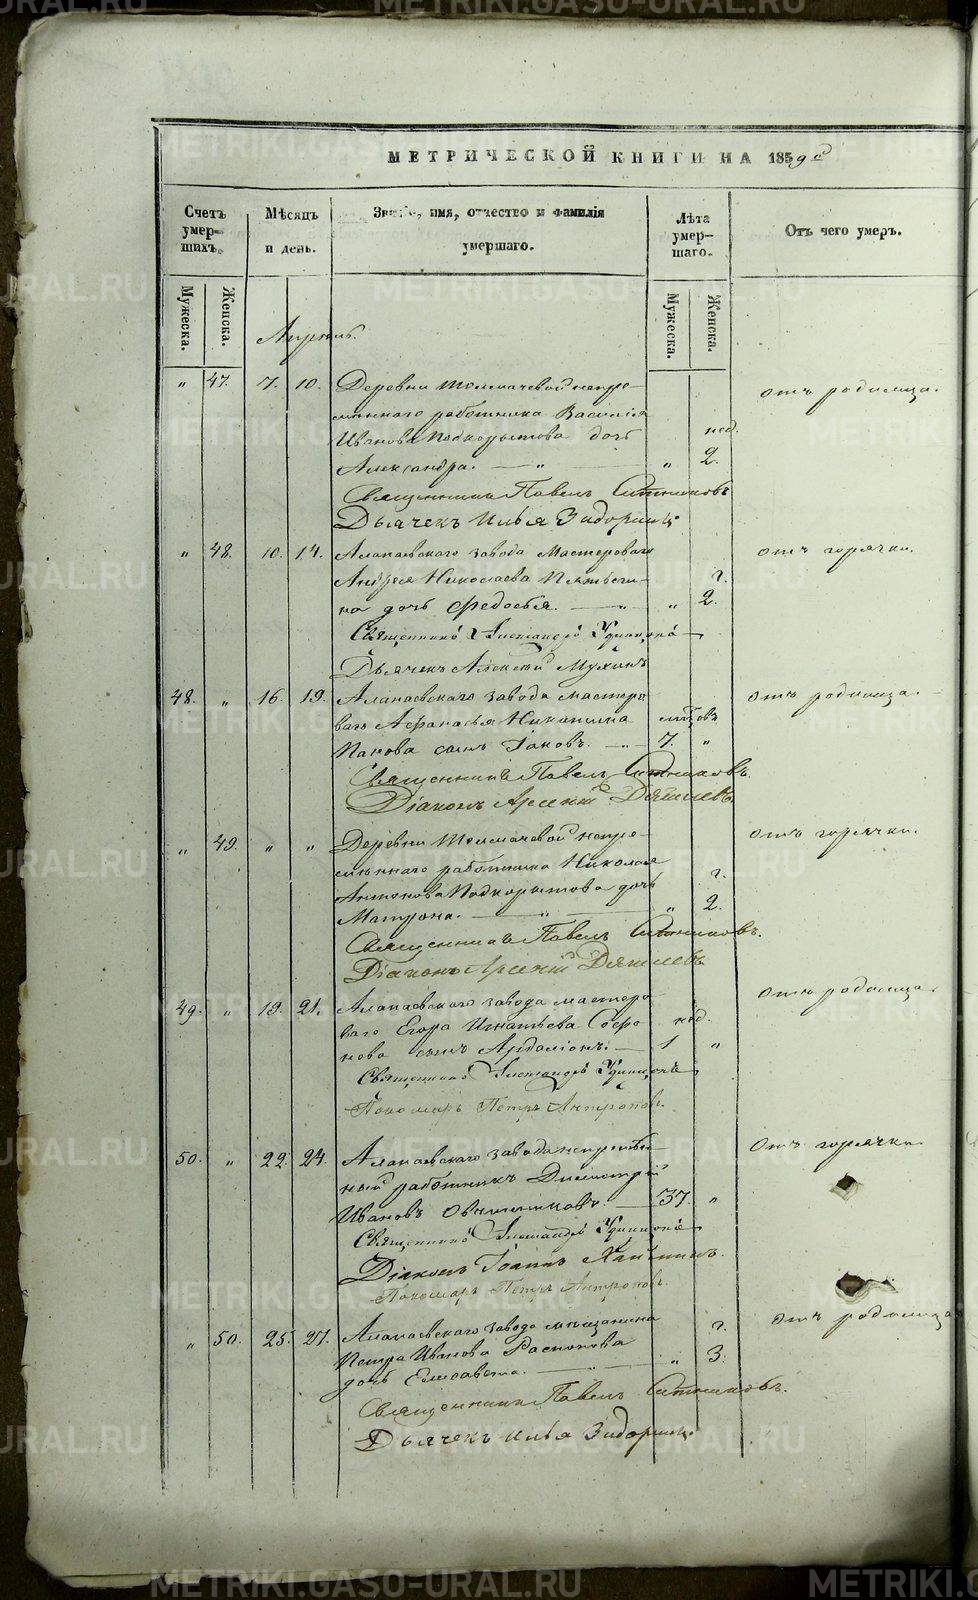 METRIKI.GASO-URAL.RU
МЕТРИЧЕСКОЙ КНИГИ НА 1859 й
Счетъ умер-ших. Мѣсяцъ и день. Званіе, имя, отчество и фамилія умершаго. Лѣта умер-шаго. Отъ чего умеръ.
Мужеска. Женска. Мужеска. Женска.
Апрѣль.
„ 47. 7. 10. Деревни Толмачевой непре- отъ родимца.
мѣннаго работника Василія
Иванова Подкорытова дочь нед.
Александра. — „ — „ 2.
Священникъ Павелъ Ситниковъ
Дьячекъ Илья Задоринъ
„ 48. 10. 14. Алапаевскаго завода Мастероваго отъ горячки.
Андрея Николаева г.
на дочь Федосья. — „ „ 2.
Священникъ Александръ Удинцовъ
Дьячекъ Алексѣй Мухинъ
48. „ 16. 19. Алапаевскаго завода мастеро- отъ родимца.
ваго Афанасья Никонина мѣсцовъ
Панова сынъ Іаковъ. — „ — 7. „
Священникъ Павелъ Ситниковъ.
Діаконъ Арсеній Дягилевъ
„ 49. „ „ Деревни Толмачевой непре- отъ горячки.
мѣннаго работника Николая
Антонова Подкорытова дочь г.
Матрона. — „ — „ 2.
Священникъ Павелъ Ситниковъ.
Діаконъ Арсеній Дягилевъ
49. „ 19. 21. Алапаевскаго завода мастеро- отъ родимца.
ваго Егора Игнатьева Софро- нед.
нова сынъ Ардаліонъ. — 1 „
Священникъ Александръ Удинцовъ
Пономарь Петръ Антроповъ.
50. „ 22. 24. Алапаевскаго завода непремѣн- Отъ горячки.
ный работникъ Димитрій
Ивановъ Овчинниковъ. — 37. „
Священникъ Александръ Удинцовъ
Діаконъ Іоаннъ
Пономарь Петръ Антроповъ.
„ 50. 25. 27. Алапаевскаго завода мѣщанина отъ родимца
Петра Иванова Распопова г.
дочь Елисавета. — „ — „ 3.
Священникъ Павелъ Ситниковъ.
Дьячекъ Илья Задоринъ.
METRIKI.GASO-URAL.RU